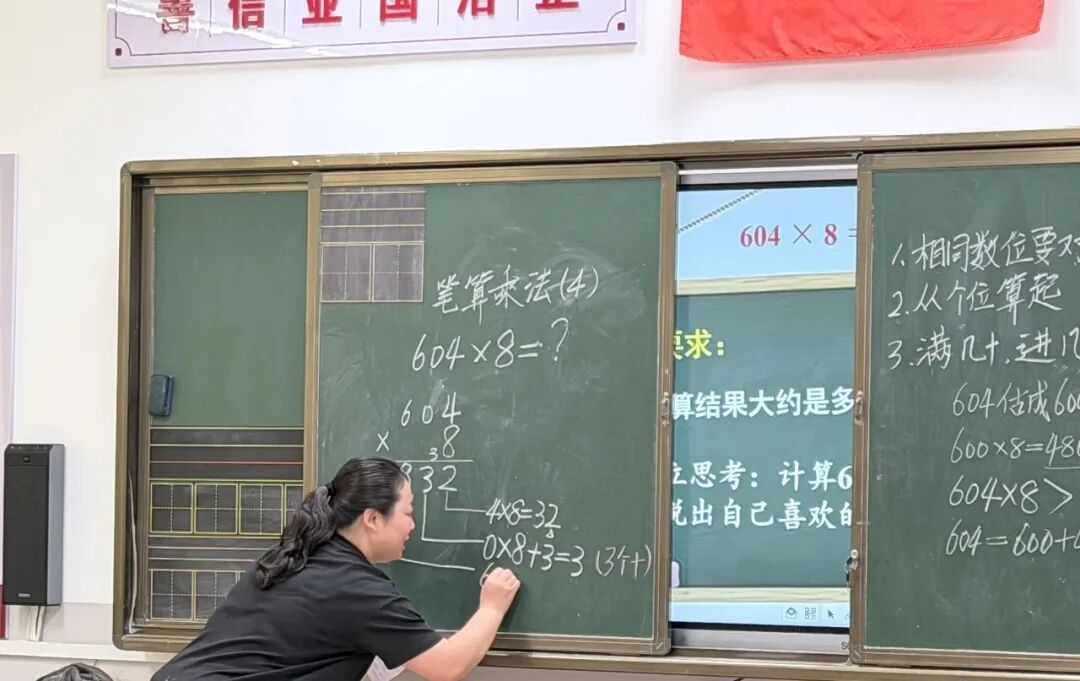 善信业国治企
笔算乘法(4)
604×8=?
604
× 8
3
832
4×8=32
0×8+3=3(3个十)
6
604 × 8 =
要求:
算结果大约是多
立思考:计算6
说出自己喜欢的
1.相同数位要对
2.从个位算起
3.满几十,进几
604估成600
600×8=480
604×8>
604=600+